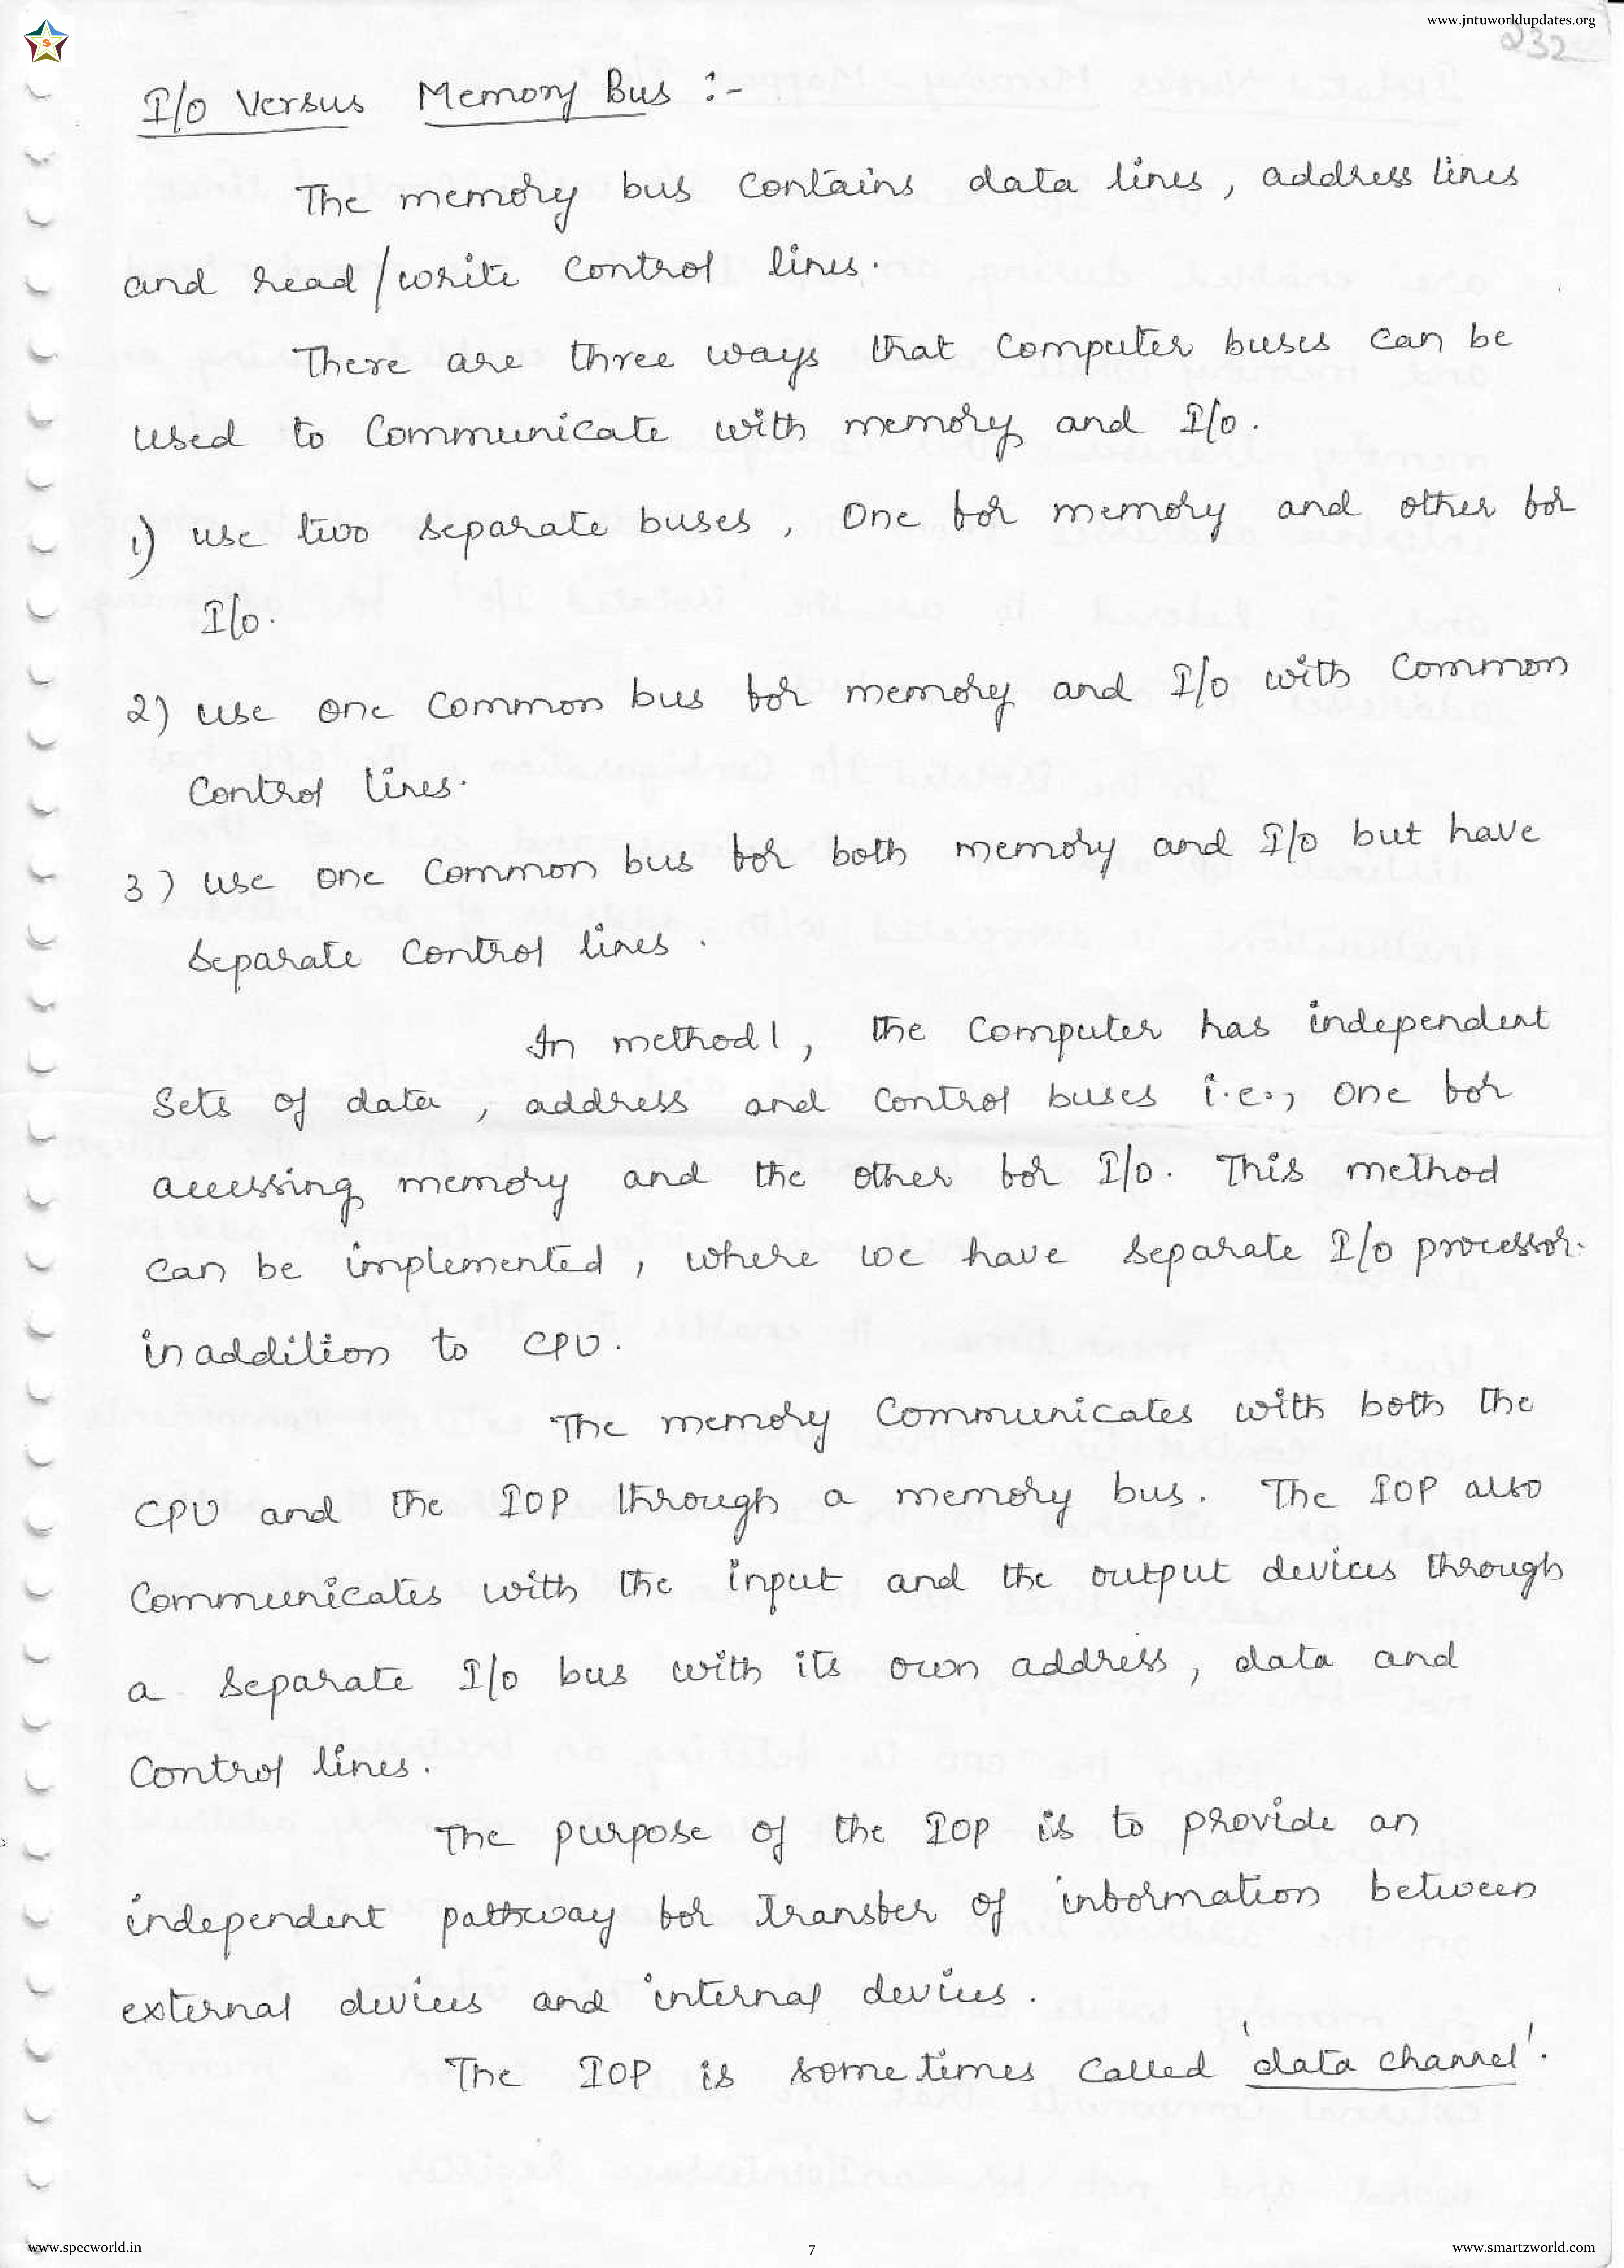 www.jntuworldupdates.org
232
I/O Versus Memory Bus :-
The memory bus contains data lines, address lines
and read/write control lines.
There are three ways that computer buses can be
used to communicate with memory and I/O.
1) use two separate buses, one for memory and other for
I/O.
2) use one common bus for memory and I/O with common
control lines.
3) use one common bus for both memory and I/O but have
separate control lines.
In method 1, the computer has independent
sets of data, address and control buses i.e., one for
accessing memory and the other for I/O. This method
can be implemented, where we have separate I/O processor
in addition to CPU.
The memory communicates with both the
CPU and the IOP through a memory bus. The IOP also
communicates with the input and the output devices through
a separate I/O bus with its own address, data and
control lines.
The purpose of the IOP is to provide an
independent pathway for transfer of information between
external devices and internal devices.
The IOP is some times called 'data channel'.
www.specworld.in
7
www.smartzworld.com